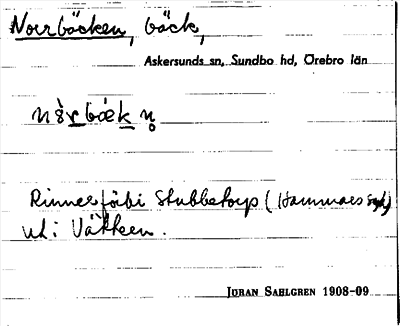 Norrbäcken, bäck,
Askersunds sn, Sundbo hd, Örebro län
Rinner förbi Stubbetorp (Hammars sn)
ut i Vättern.
JÖRAN SAHLGREN 1908-09